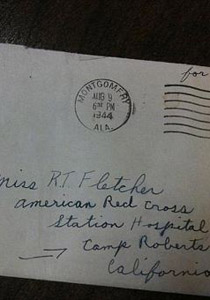 for
MONTGOMERY
AUG 9
6 30 PM
1944
ALA.
Miss R.T. Fletcher
American Red Cross
Station Hospital
Camp Roberts
California